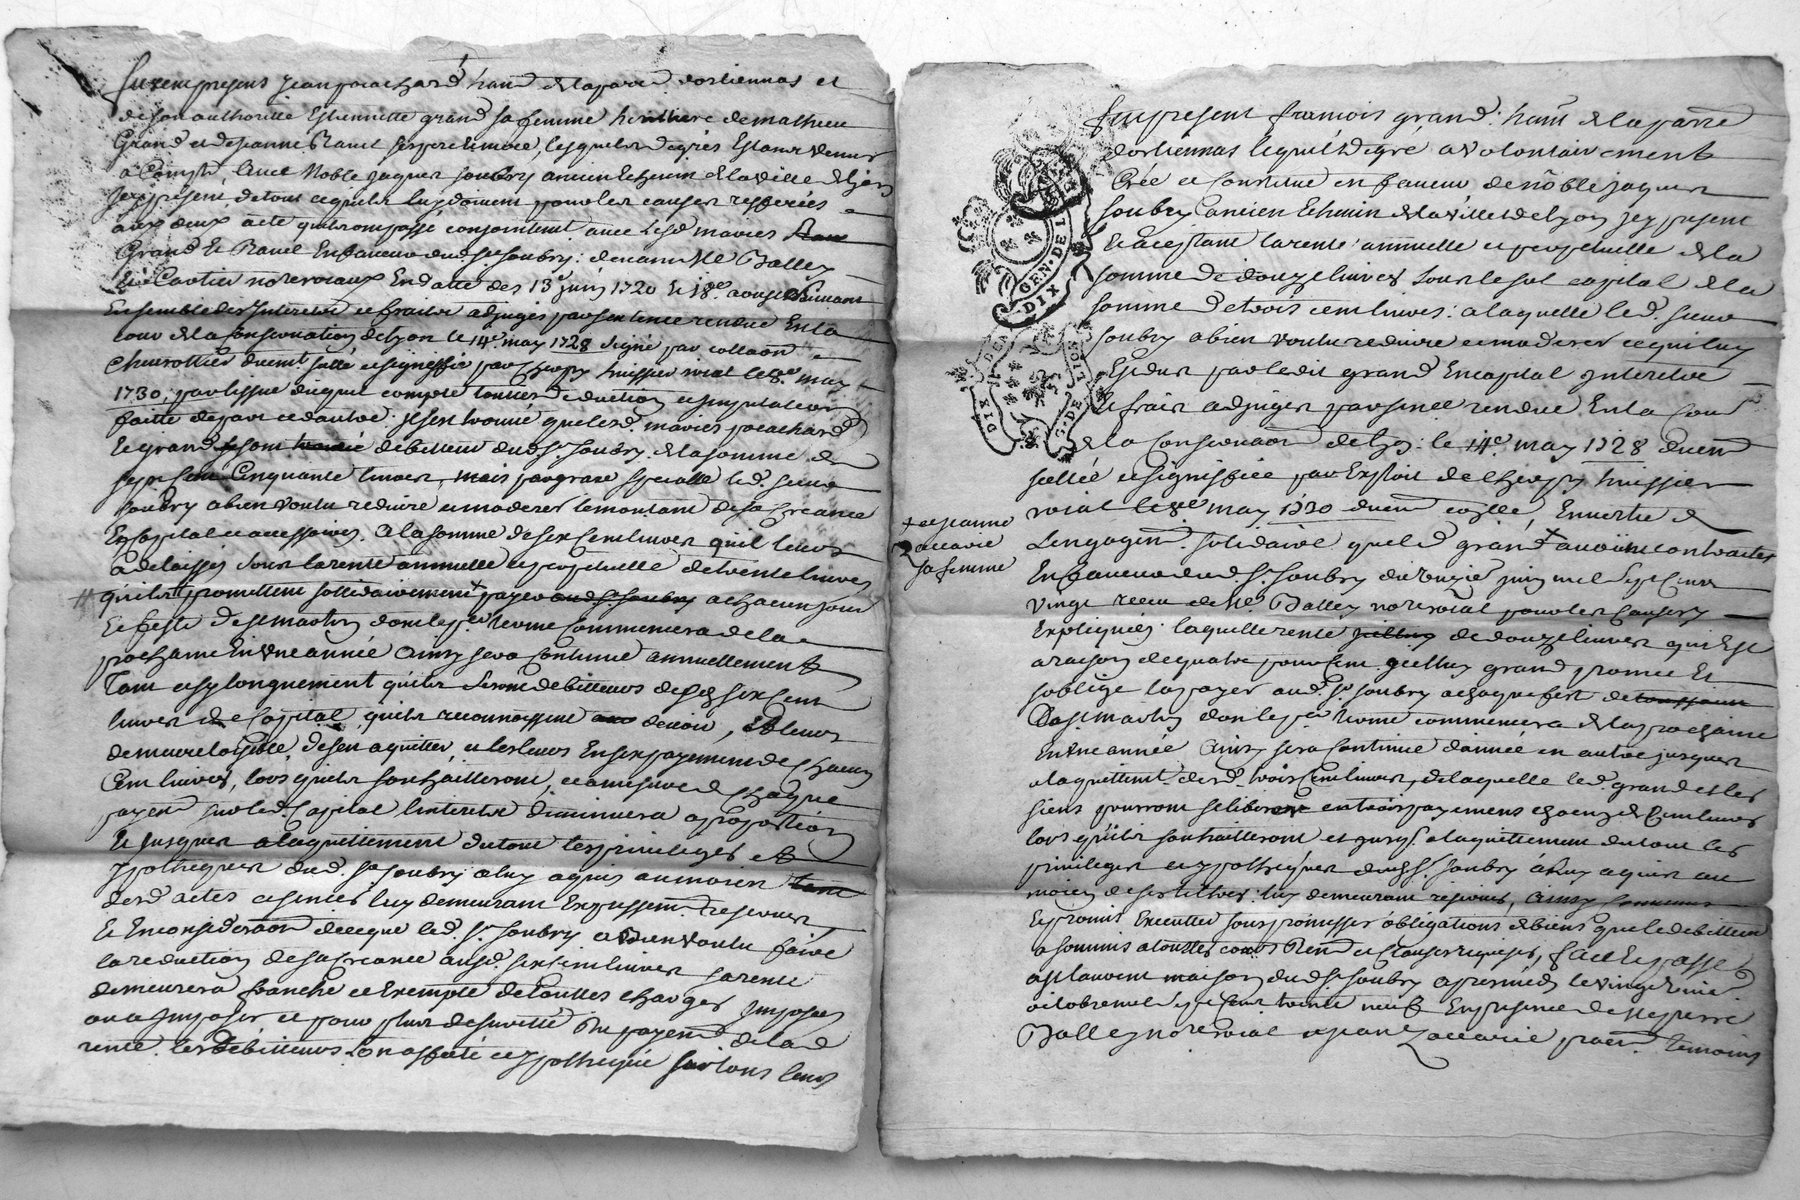 fut present Jean poachard hanᵗ de la parre dorliennas et
de son authorité Estiennette grand sa femme heritiere de mathieu
Grand et de Jeanne Ravel ses pere et mere, lesquels de grés Estant venus
a Compte Avec Noble Jaques Soubry ancien Echevin de la ville de Lyon
Jcy présent, de tout ce quils luy doivent pour les causes refferées
aux deux acte quils ont passé conjointement avec lesd. mariés
Grand et Ravel En faveur dud. Sr Soubry: devant Me Balley
Et Cartier nores roiaux En datte des 13e juin 1720 et 18e aoust suivant
Ensemble des Interets et fraits adjugés par sentence rendue En la
Cour de la Conservation de Lyon le 14e. may 1728 signé par collaon
Chuvottier duemt. sellé et signiffié par Cheipy huissier roial le 8e may
1730, par lissue duquel compte touttes deduction et imputation
faitte de part et dautre: il sest trouvé que lesd. mariés poachard
Et grand sont debitteur dud. Sr. Soubry de la somme de
sept Cent Cinquante livres, mais par grace specialle led. sieur
Soubry a bien voulu reduire et moderer le montant de sa Creance
En Capital et accessoires, A la somme de six Cent livres quil leurs
a delaissés sous la rente annuelle et perpetuelle de trente livres
quils promettent sollidairement payer aud Sr Soubry a chacun jour
Et feste de st martin dont le per. terme Commencera de la
prochaine En une année Ainsy sera Continué annuellement
Tant et sy longuement quils seront debitteurs desd. six Cent
livres de Capital, quils reconnoissent devoir, Et leurs
demeure loisible desen aquitter, et les leurs En six payements de Chacun
Cent livres, lors quils souhaitteront, et a mesure de Chaque
payemt sur led. Capital linterets diminuera a proportion
Et jusques alaquittement du tout les privileges et
hypotheques dud. Sr Soubry a luy aquis au moien
desd actes et sentces luy demeurant Expressemt. reservés
Et En consideraon de ce que led. Sr. Soubry a Bien voulu faire
la reduction de sa Creance ausd. six Cent livres la rente
demeurera franche et Exempte de touttes charges Imposées
ou a Imposer et pour plus de sureté du payemt de lad
rente. les debitteurs Lon affecté et hypothequé sur tous leurs
fut present francois grand: hant de la parre
dorliennas lequel de gré a volontairement
Créé et Constitué en faveur de noble jaques
Soubry ancien Echevin de la ville de lyon jcy present
Et aceptant la rente annuelle et perpetuelle de la
somme de douze livres sous le sol capital de la
somme de trois cent livres: a laquelle led. sieur
Soubry a bien voulu reduire et moderer ce qui luy
Est deu par ledit grand En capital Interets
Et frais adjuges par sentce rendue En la Cour
de la Conservaon de Lyon: le 14e. may 1728 duemt
sellée et signiffiée par Exploit de Cheipy huissier
roial le 8e may 1730 duemt collé, En vertu de
Lengagemt. solidaire que led grand + avoient contractés
+ et jeanne
zaccarie
sa femme
En faveur dud. Sr. Soubry du treize juin mil sept Cent
vingt receu de Me Balley nore roial pour les causes y
Expliquées laquelle rente de douze livres qui Est
a raison de quatre pour Cent led. grand promet Et
soblige la payer aud. Sr Soubry a chaque fest de toussaint
Da st martin dont le per terme commencera de la prochaine
En Une année Ainsy sera Continué dannée en autre jusques
alaquittemt. desd. trois Cent livres, de laquelle led. grand et les
siens pourront se liberer en trois payemens chacun de Cent livres
lors quils souhaitteront et jusqs. alaquittement du tout les
privileges et hypotheques dud Sr. Soubry a luy aquis au
moien de ses tittres: luy demeurant reservés, Ainsy Convenu
Et promis Executter sous promesses obligations de biens que le debitteur
a soumis a touttes cours Renon et Clauses requises, fait Et passé
a st laurent maison dud Sr. Soubry apres midy le vingt
octobre mil sept Cent trente neuf En presence de Me pierre
Balley nore roial et jean Zaccarie praen. temoins
GEN. DE LION
DIX DEN